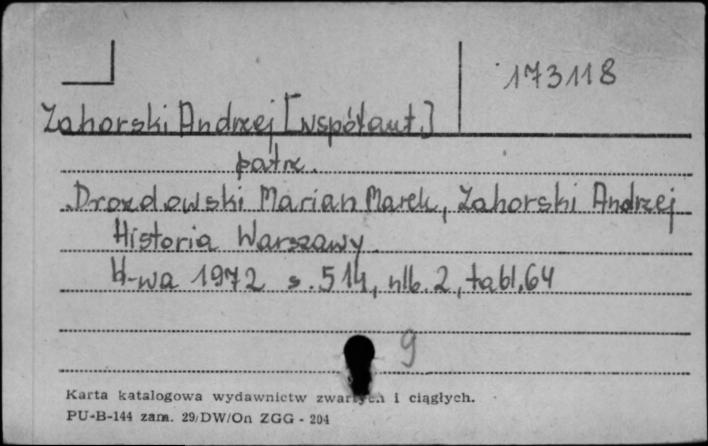 173118
Zahorski Andrzej [współaut.]
patrz.
Drozdowski Marian Marek, Zahorski Andrzej
Historia Warszawy.
W-wa 1972 s. 514, nlb. 2, tabl. 64
9
Karta katalogowa wydawnictw zwartych i ciągłych.
PU-B-144 zam. 29/DW/On ZGG - 204